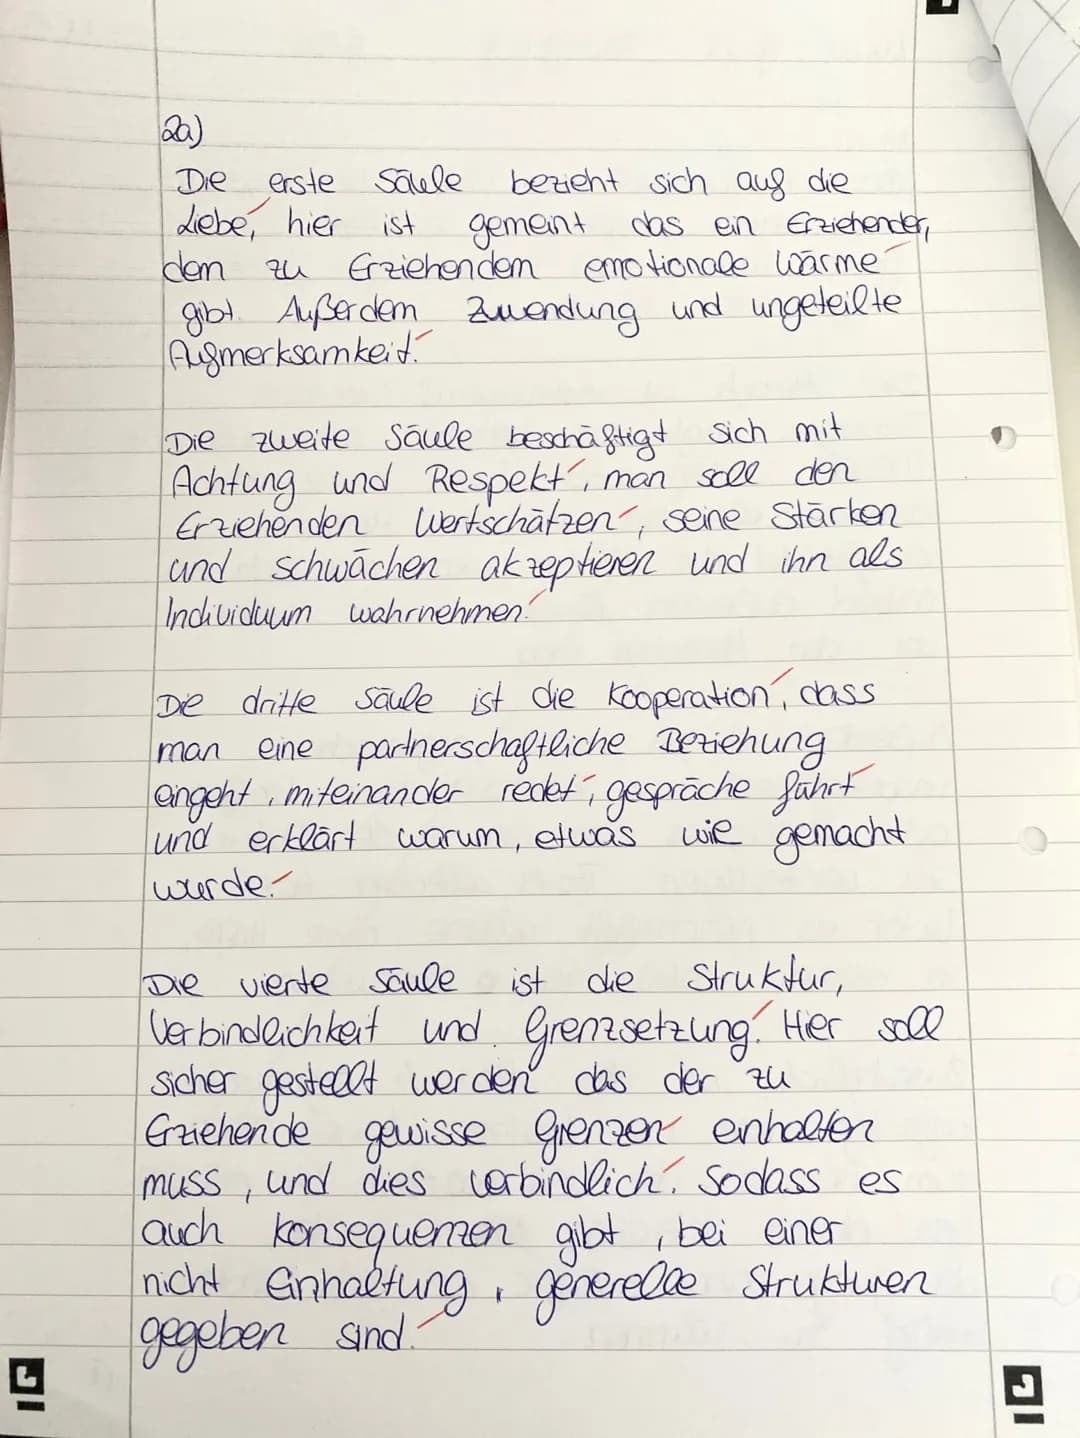 2a)
Die erste Säule bezieht sich auf die
Liebe, hier ist gemeint das ein Erziehender,
dem zu Erziehendem emotionale Wärme
gibt. Außerdem Zuwendung und ungeteilte
Aufmerksamkeit.
Die zweite Säule beschäftigt sich mit
Achtung und Respekt, man soll den
Erziehenden Wertschätzen, seine Stärken
und schwächen akzeptieren und ihn als
Individuum wahrnehmen.
Die dritte Säule ist die Kooperation, dass
man eine partnerschaftliche Beziehung
eingeht, miteinander redet, gespräche führt
und erklärt warum, etwas wie gemacht
wurde.
Die vierte Säule ist die Struktur,
Verbindlichkeit und Grenzsetzung. Hier soll
sicher gestellt werden das der zu
Erziehende gewisse Grenzen einhalten
muss, und dies verbindlich. Sodass es
auch Konsequenzen gibt, bei einer
nicht Einhaltung, generelle Strukturen
gegeben sind.